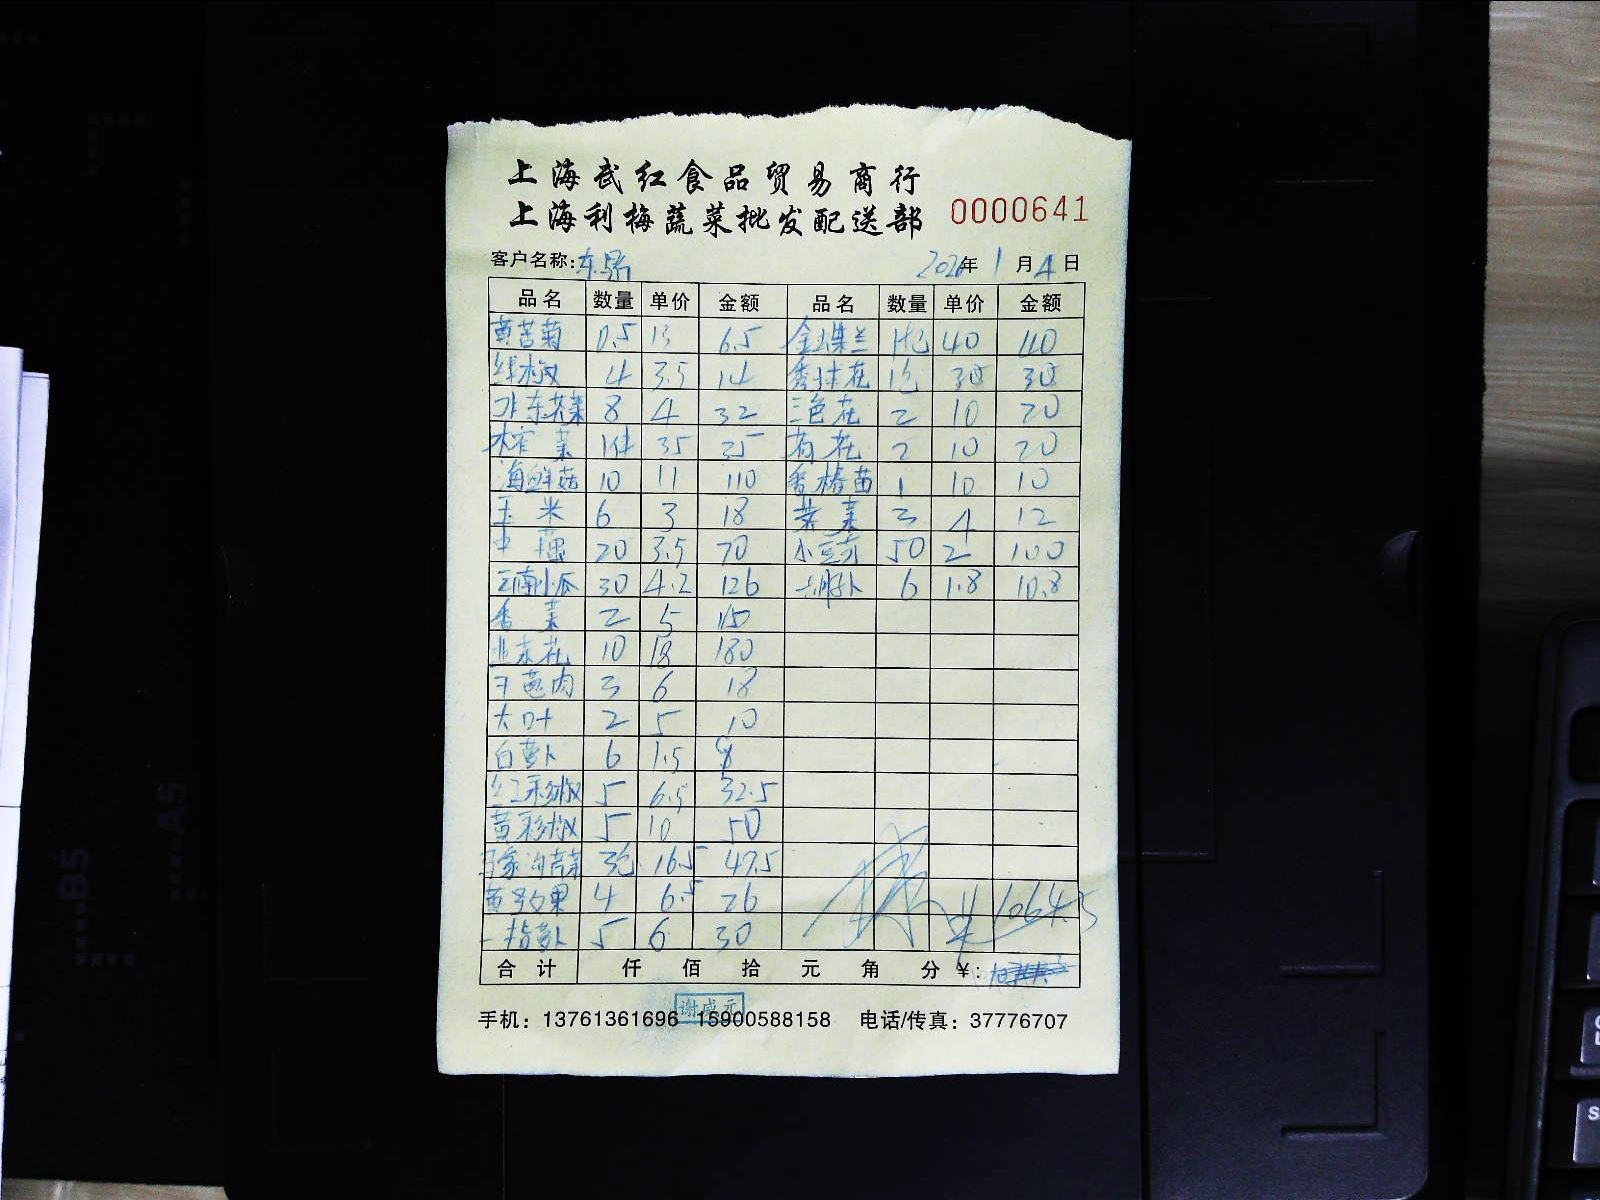 上海武红食品贸易商行
上海利梅蔬菜批发配送部 0000641
客户名称: 年 1 月 4 日
品名 数量 单价 金额 品名 数量 单价 金额
黄苦菊 0.5 13 6.5 40 40
线椒 4 3.5 14 秀球花 1包 30 30
8 4 32 三色花 2 10 20
榨菜 1件 35 35 荷花 2 10 20
海鲜菇 10 11 110 香椿苗 1 10 10
玉米 6 3 18 菜 3 4 12
20 3.5 70 50 2 100
云南小瓜 30 4.2 126 6 1.8 10.8
香菜 2 5
韭菜花 10 18 180
3 6 18
大叶 2 5 10
白萝卜 6 1.5
红彩椒 5 6.5 32.5
黄彩椒 5 10 50
马家沟芹菜 3包 16.5
4 6.5 26
一指萝卜 5 6 30
1064.5
合计 仟 佰 拾 元 角 分 ¥:
谢盛元
手机: 13761361696 15900588158 电话/传真: 37776707
B5
A5